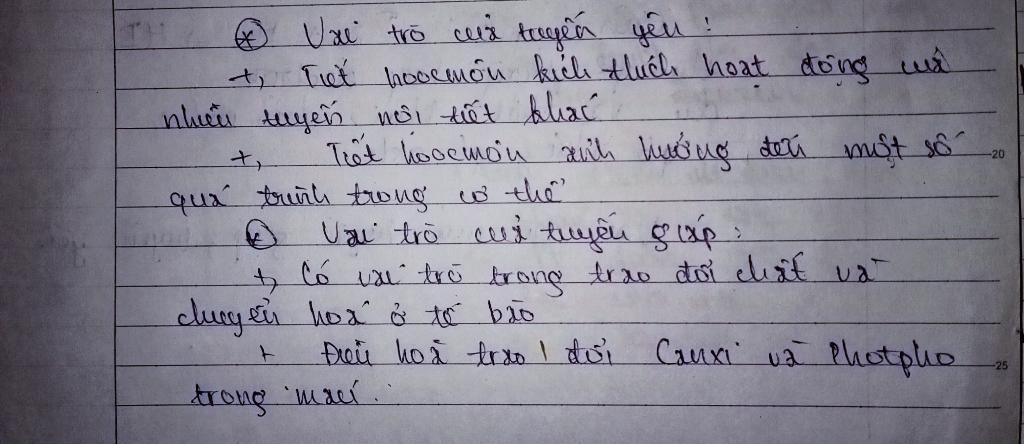 * Vai trò của tuyến yên :
+, Tiết hoocmôn kích thích hoạt động của
nhiều tuyến nội tiết khác
+, Tiết hoocmôn ảnh hưởng đến một số
20
quá trình trong cơ thể
* Vai trò của tuyến giáp :
+, Có vai trò trong trao đổi chất và
chuyển hoá ở tế bào
+ Điều hoà trao đổi Canxi và Photpho
25
trong máu.